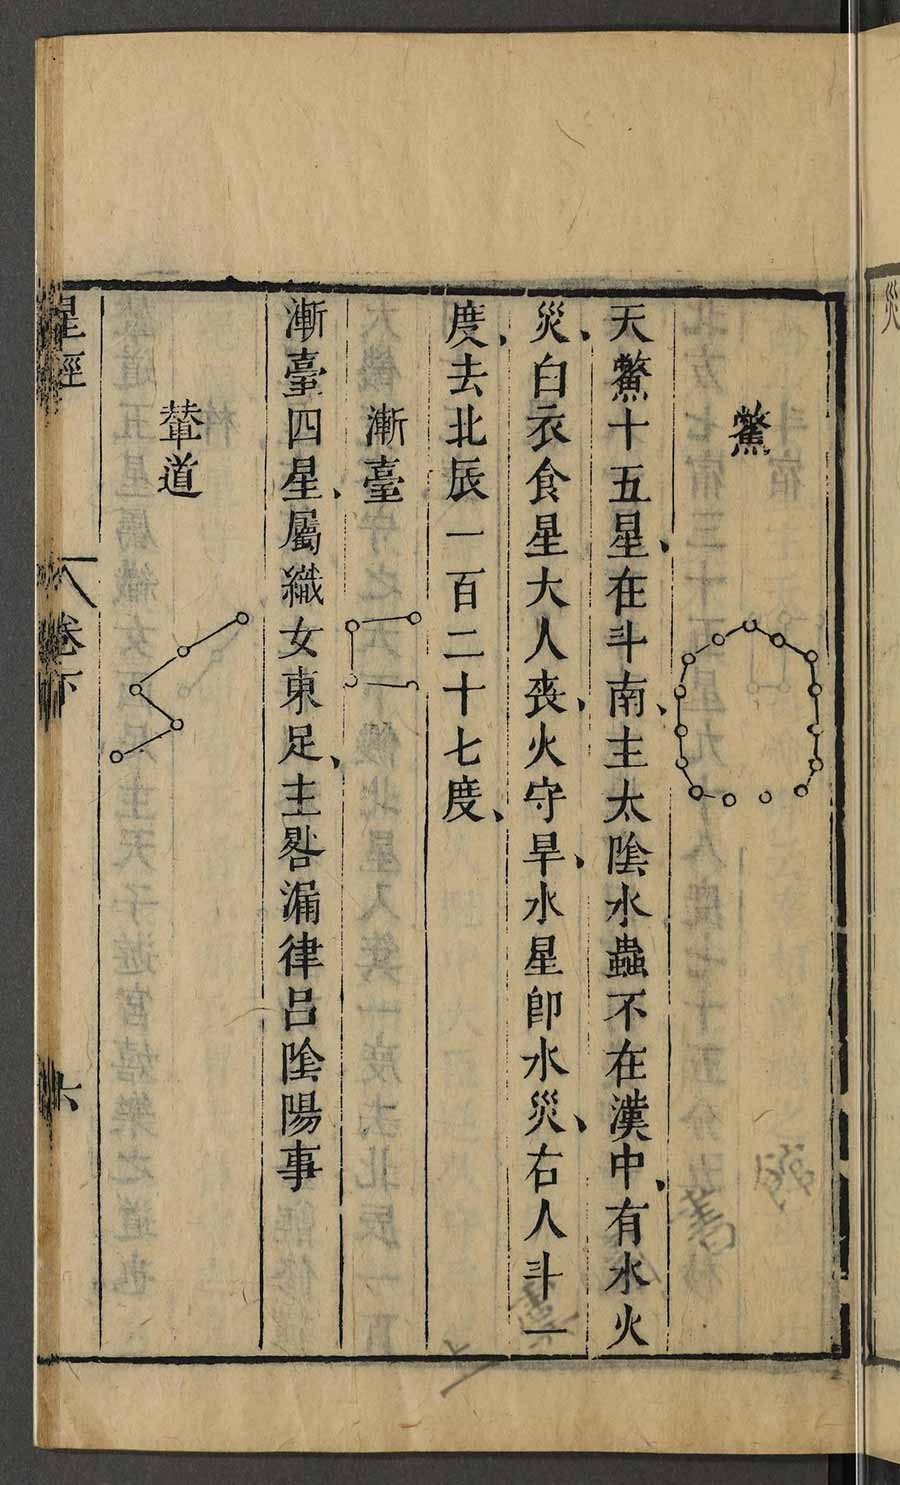 鱉
天鱉十五星在斗南主太陰水蟲不在漢中有水火
災白衣食星大人喪火守旱水星即水災右人斗一
度去北辰一百二十七度
漸臺
漸臺四星屬織女東足主晷漏律呂陰陽事
輦道
星經
卷下
六
災